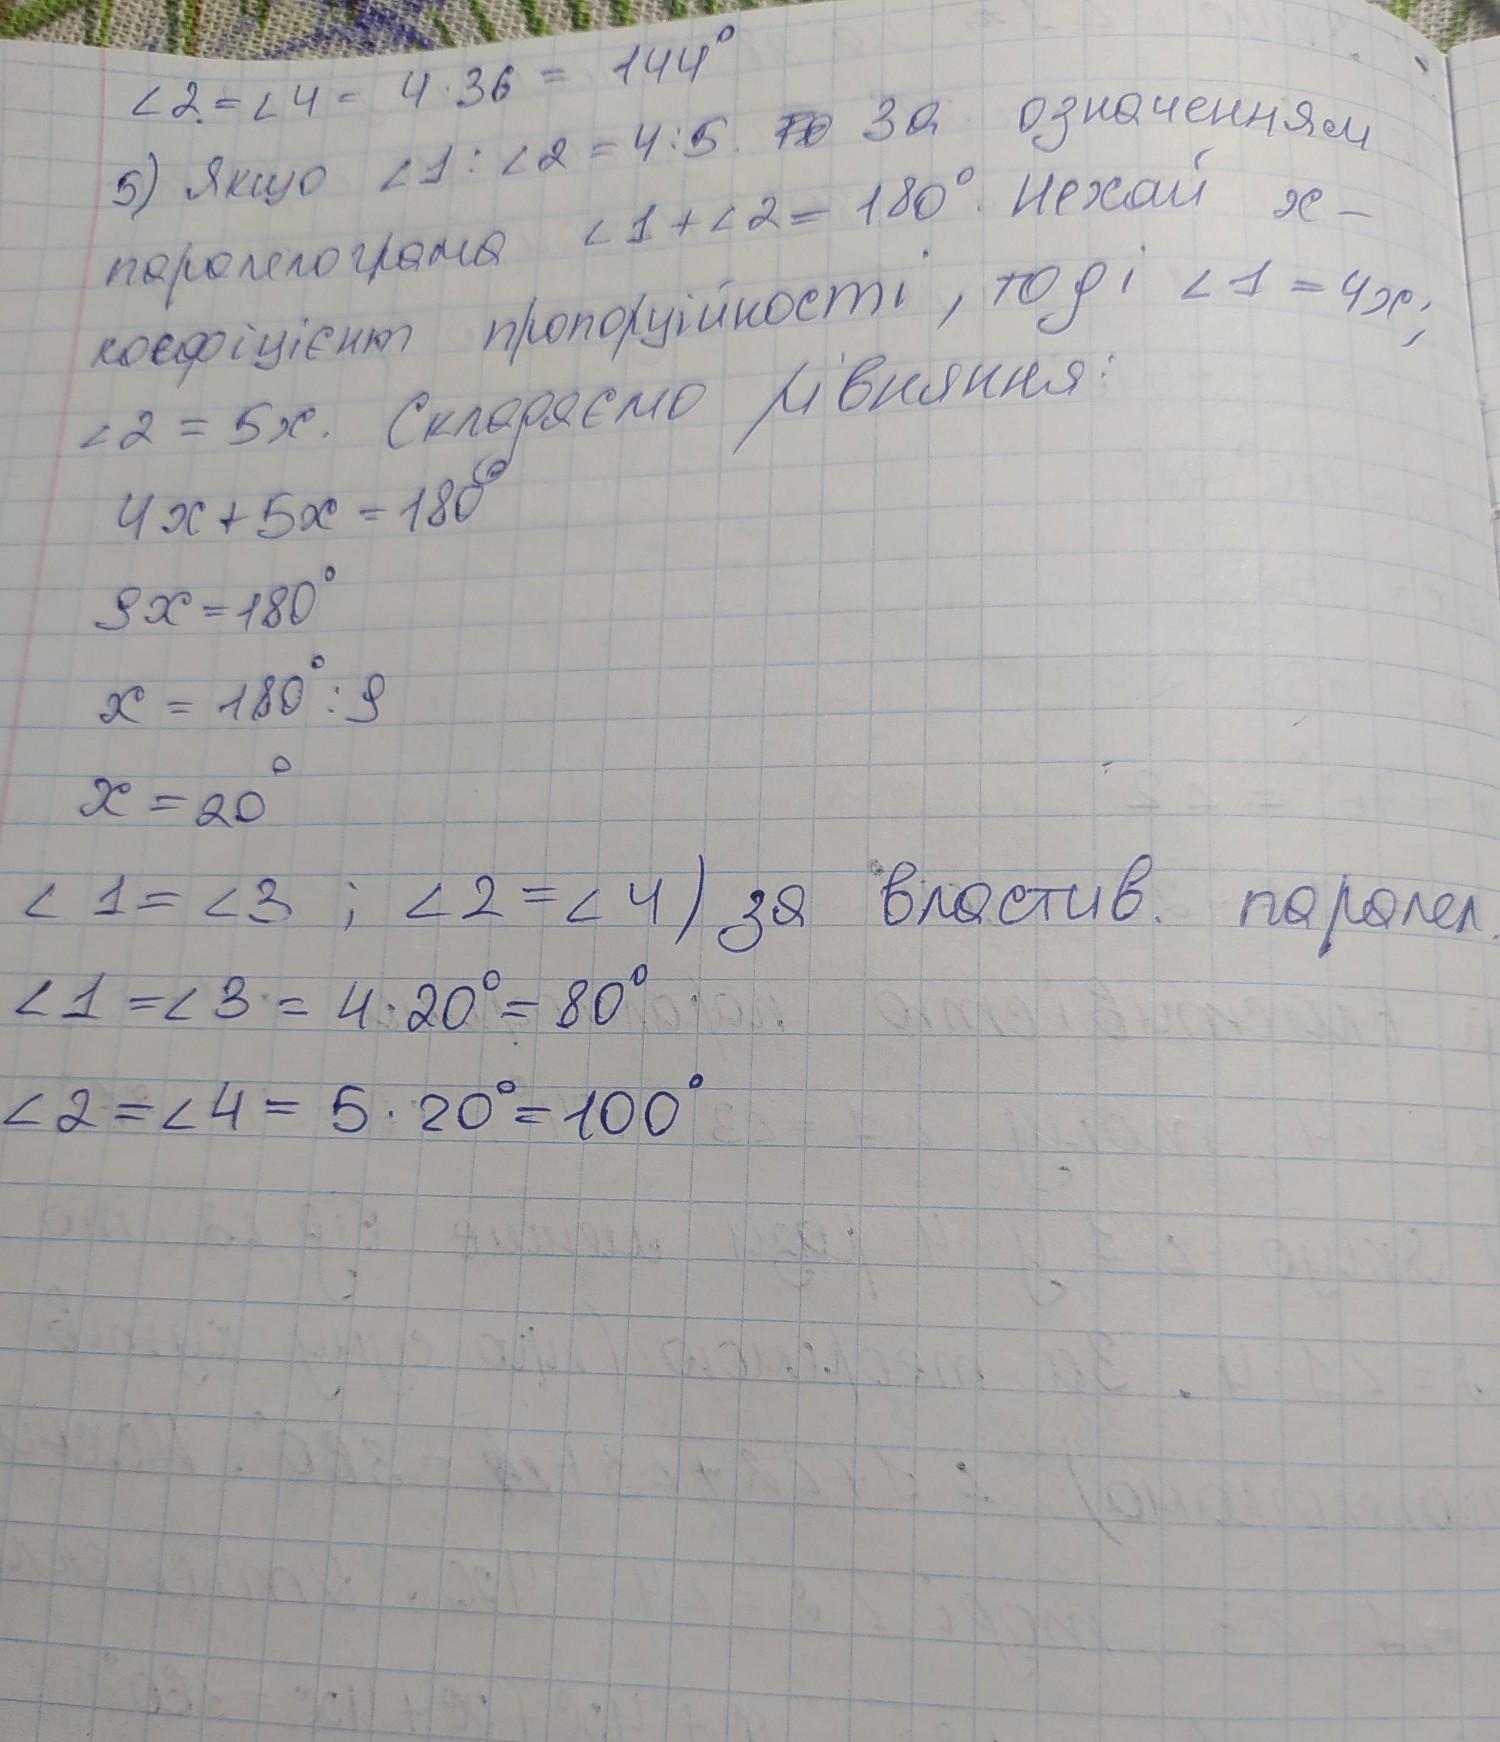 ∠2 = ∠4 = 4·36 = 144°
5) Якщо ∠1 : ∠2 = 4:5. За означенням
паралелограма ∠1 + ∠2 = 180°. Нехай x –
коефіцієнт пропорційності, тоді ∠1 = 4x;
∠2 = 5x. Складаємо рівняння:
4x + 5x = 180°
9x = 180°
x = 180° : 9
x = 20°
∠1 = ∠3 ; ∠2 = ∠4) за властив. паралел.
∠1 = ∠3 = 4·20° = 80°
∠2 = ∠4 = 5·20° = 100°